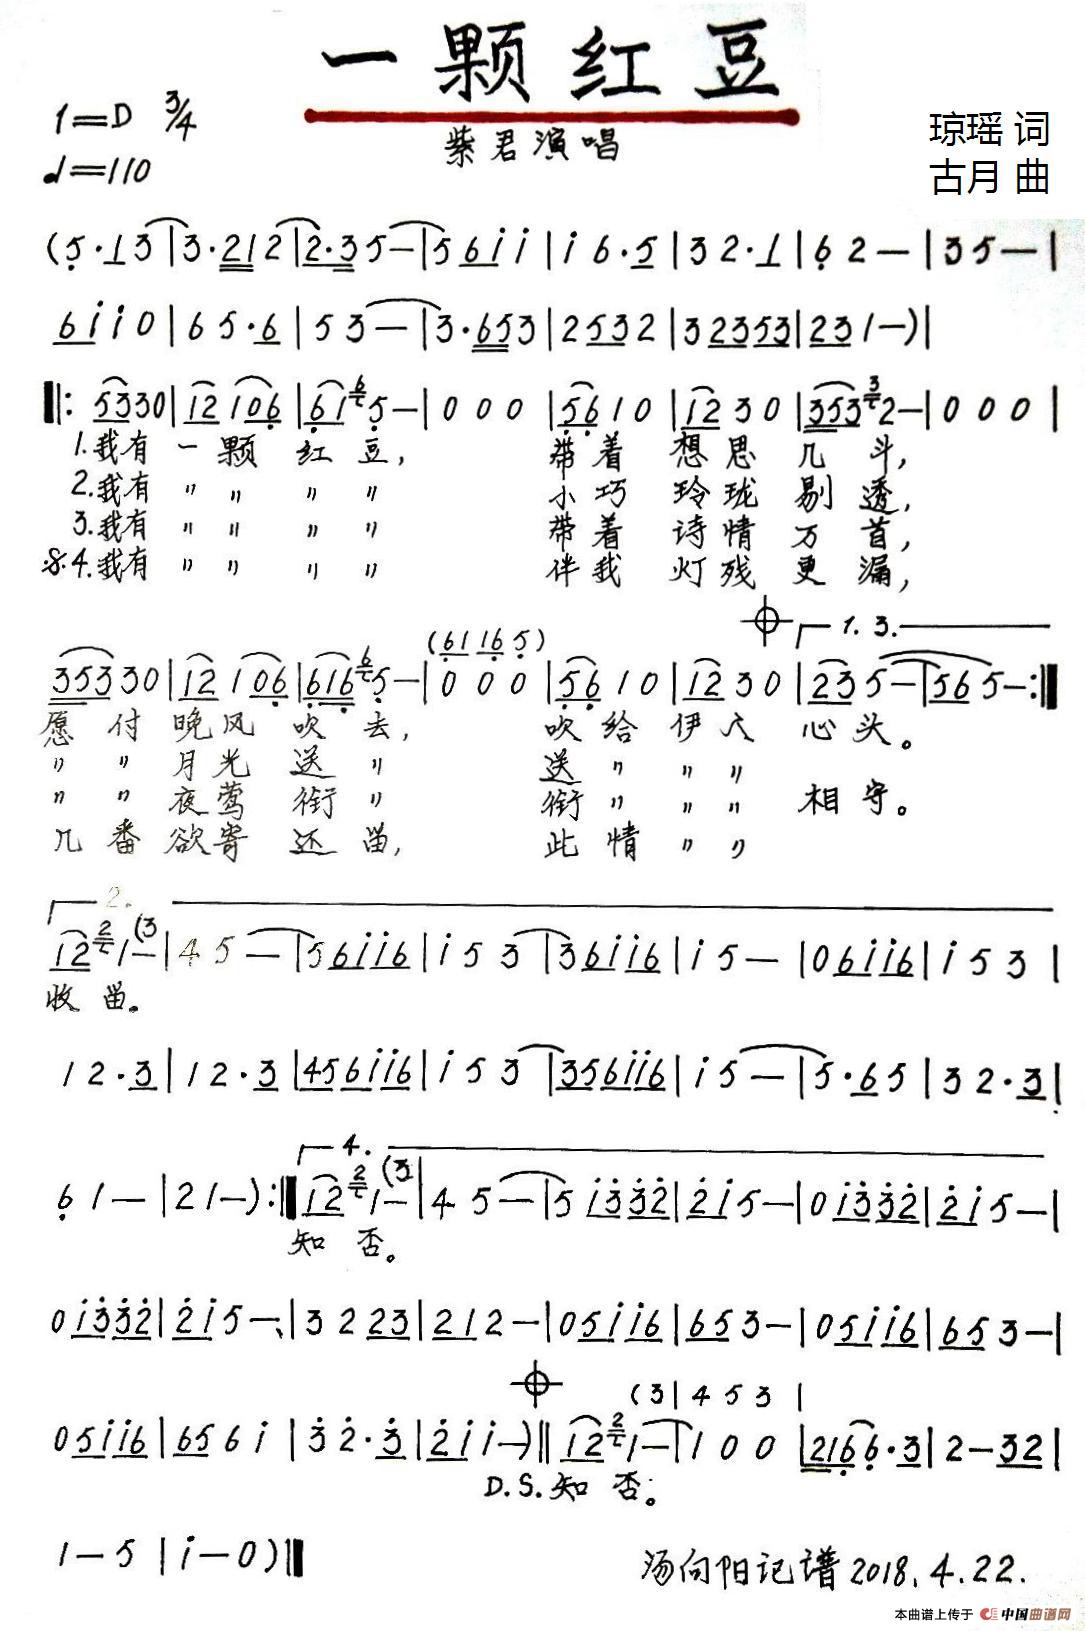 一颗红豆
1=D 3/4
♩=110
紫君演唱
琼瑶 词
古月 曲
(5·1 3|3·2 1 2|2·3 5—|5 6 i i|i 6·5|3 2·1|6 2—|3 5—|
6 i i 0|6 5·6|5 3—|3·6 5 3|2 5 3 2|3 2 3 5 3|2 3 1—)|
‖: 5 3 3 0|1 2 1 0 6|6 1 6 5—|0 0 0|5 6 1 0|1 2 3 0|3 5 3 3 2—|0 0 0|
1.我有 一 颗 红 豆, 带 着 想 思 几 斗,
2.我有 〃 〃 〃 〃 小 巧 玲 珑 剔 透,
3.我有 〃 〃 〃 〃 带 着 诗 情 万 首,
:S: 4.我有 〃 〃 〃 〃 伴 我 灯 残 更 漏,
(6 1 1 6 5)
1. 3.
3 5 3 3 0|1 2 1 0 6|6 1 6 6 5—|0 0 0|5 6 1 0|1 2 3 0|2 3 5—|5 6 5—:‖
愿 付 晚 风 吹 去, 吹 给 伊 人 心 头。
〃 〃 月 光 送 〃 送 〃 〃 〃
〃 〃 夜 莺 衔 〃 衔 〃 〃 〃 相 守。
几 番 欲 寄 还 留, 此 情 〃 〃
2.
1 2 2 1—(3|4 5—|5 6 i i 6|i 5 3|3 6 i i 6|i 5—|0 6 i i 6|i 5 3|
收 留。
1 2·3|1 2·3|4 5 6 i i 6|i 5 3|3 5 6 i i 6|i 5—|5·6 5|3 2·3|
4.
6 1—|2 1—):‖1 2 2 1—(3|4 5—|5 i 3 3 2|2 i 5—|0 i 3 3 2|2 i 5—|
知 否。
0 i 3 3 2|2 i 5—|3 2 2 3|2 1 2—|0 5 i i 6|6 5 3—|0 5 i i 6|6 5 3—|
(3|4 5 3|
0 5 i i 6|6 5 6 i|3 2·3|2 i i—)‖1 2 2 1—|1 0 0|2 1 6 6·3|2—3 2|
D.S.知 否。
1—5|i—0)‖
汤向阳记谱2018.4.22.
本曲谱上传于 中国曲谱网